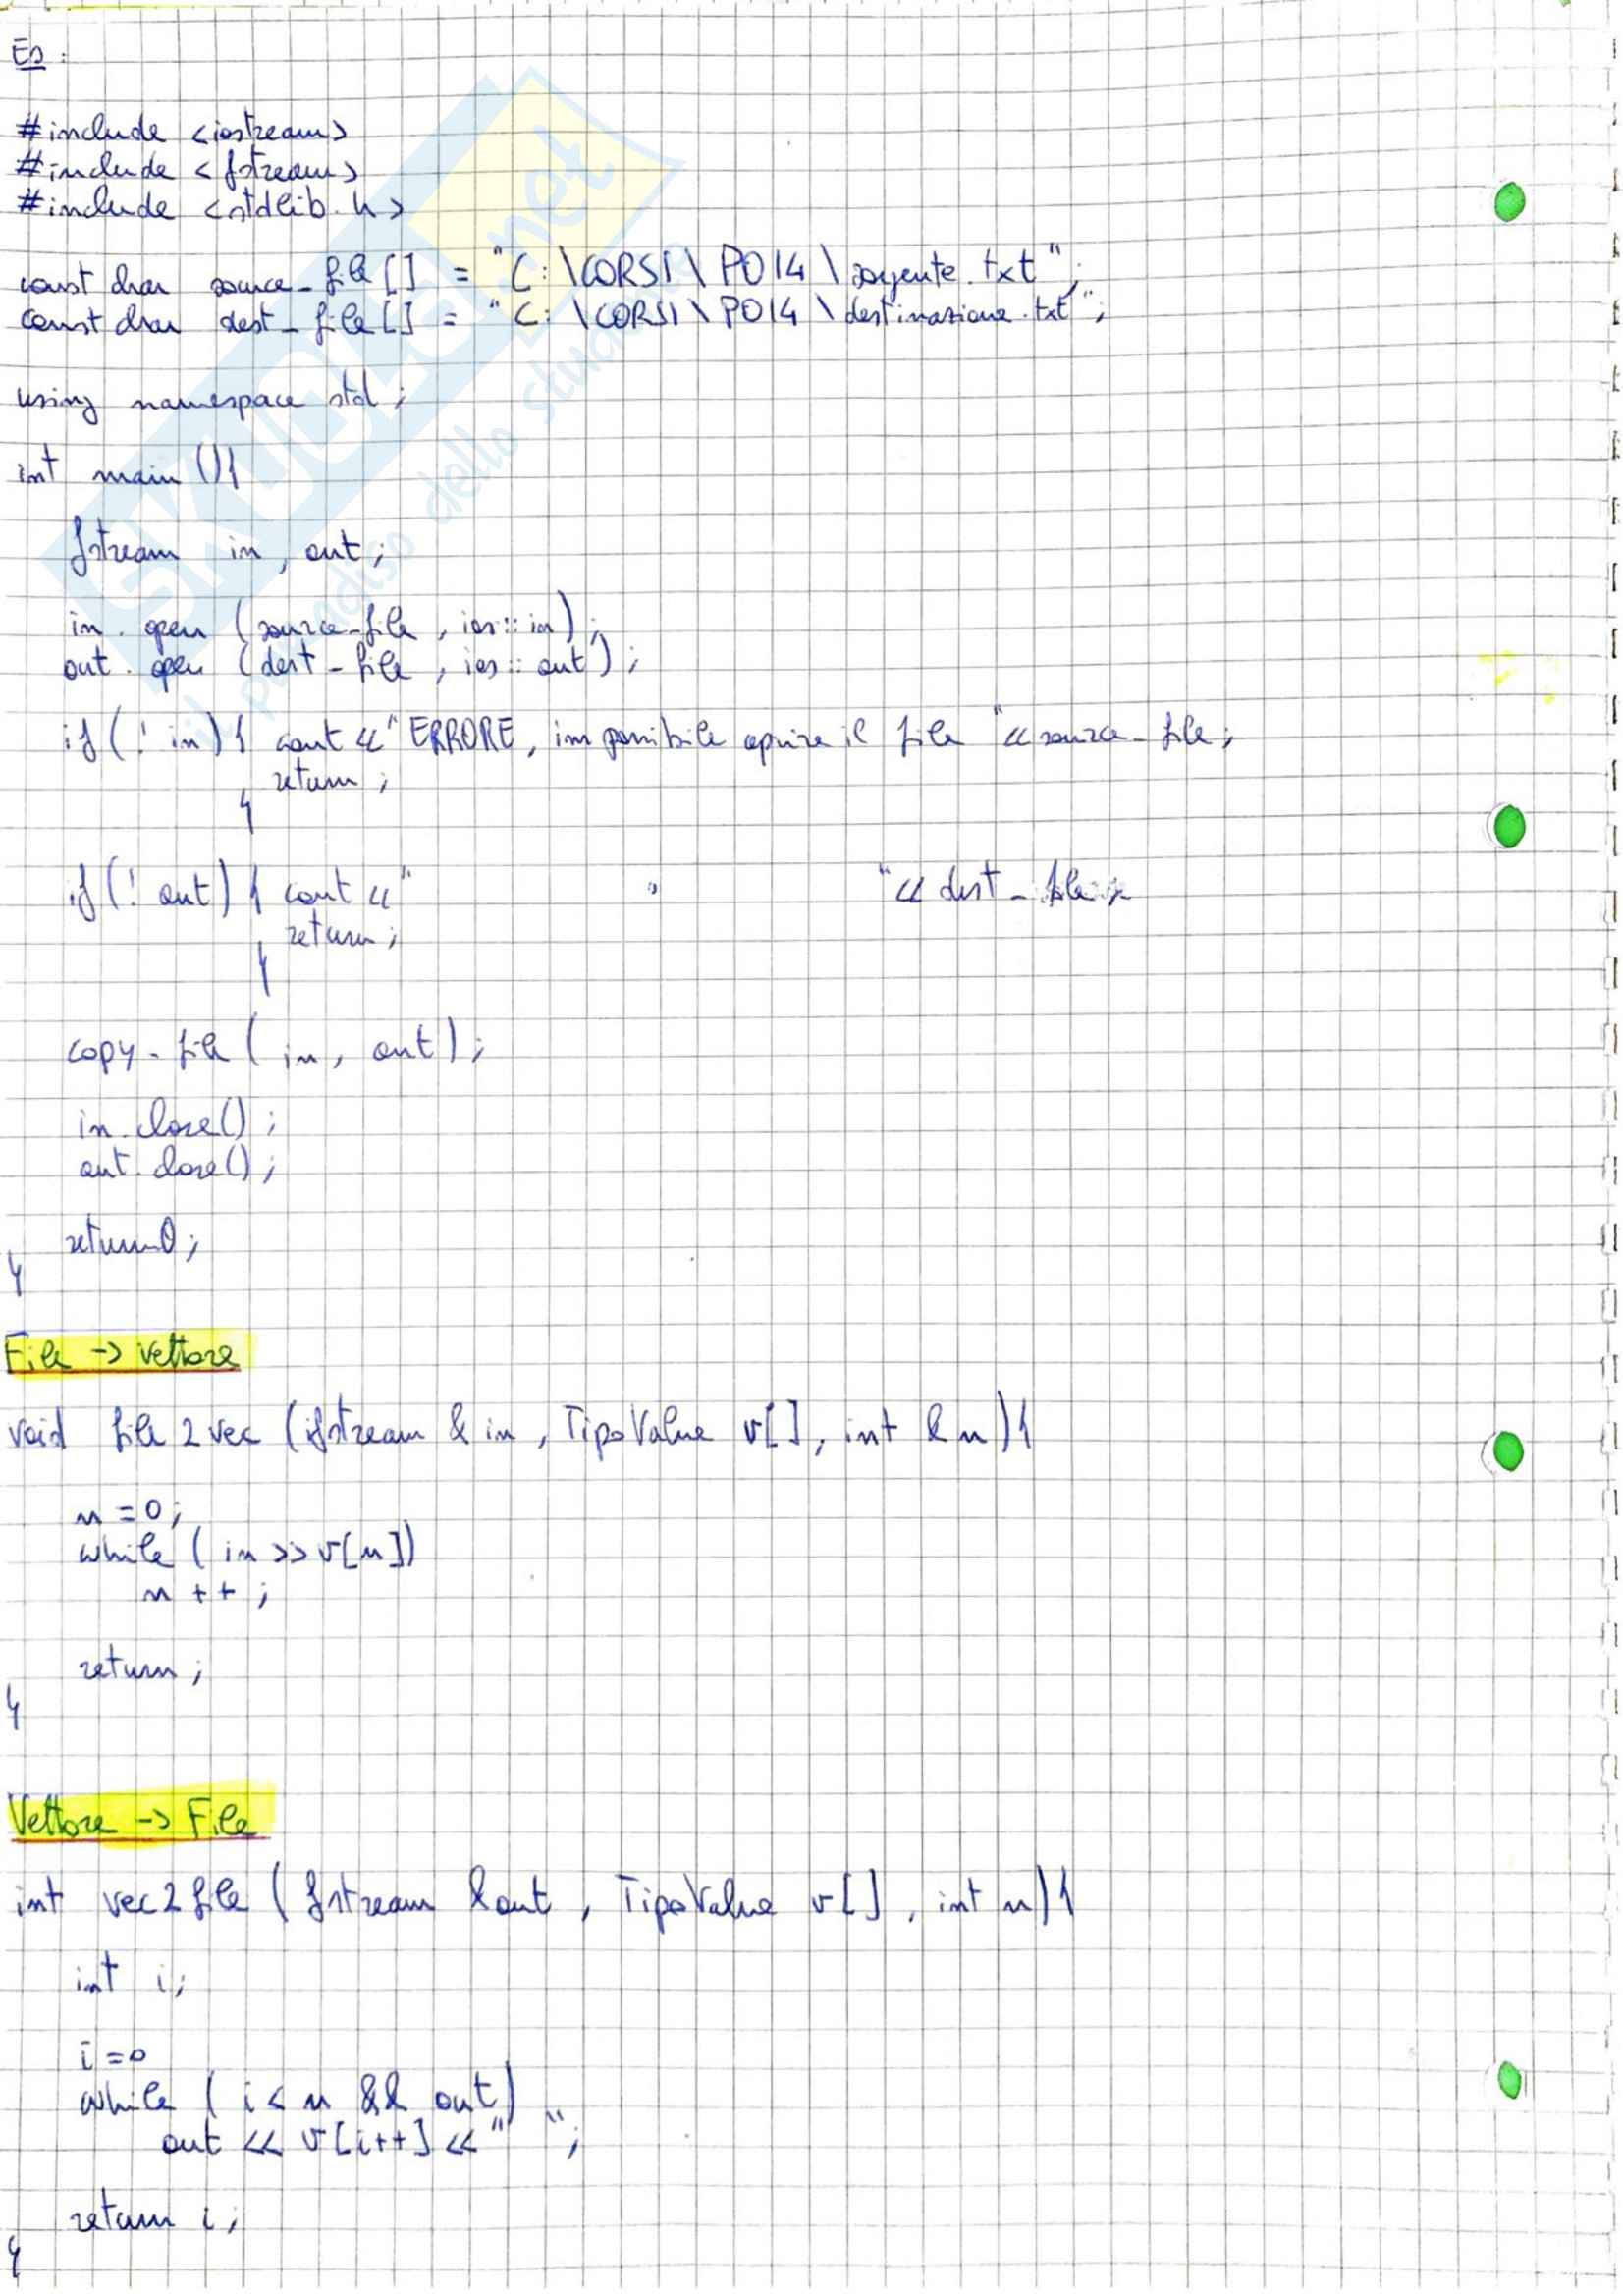 Es:
#include <iostream>
#include <fstream>
#include <stdlib.h>
const char source_file[] = "C:\CORSI\PO14\sorgente.txt";
const char dest_file[] = "C:\CORSI\PO14\destinazione.txt";
using namespace std;
int main (){
fstream in, out;
in.open (source_file, ios::in);
out.open (dest_file, ios::out);
if(!in){ cout << "ERRORE, impossibile aprire il file " << source_file;
return;
}
if(!out){ cout << " " " << dest_file;
return;
}
copy_file (in, out);
in.close();
out.close();
return 0;
}
File -> Vettore
void file2vec (ifstream & in, TipoValue v[], int & n){
n=0;
while (in >> v[n])
n++;
return;
}
Vettore -> File
int vec2file (fstream &out, TipoValue v[], int n){
int i;
i=0
while (i < n && out)
out << v[i++] << " ";
return i;
}
SKUOLA.net
il paradiso dello studente